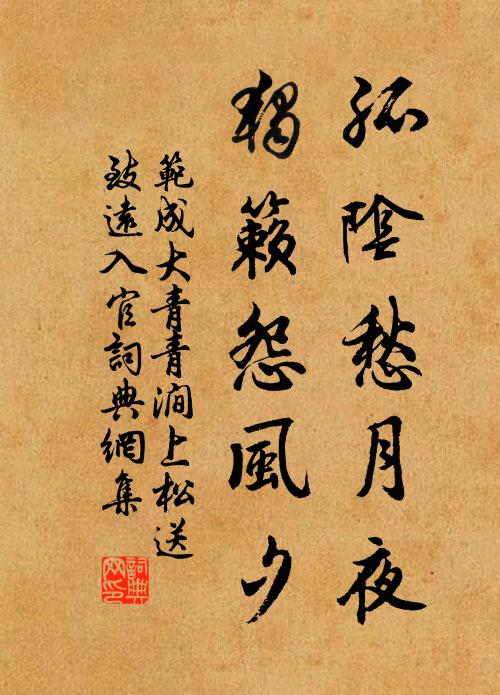 孤陰愁月夜
獨籟怨風夕
範成大青青澗上松送
致遠入官詞典網集
詞典
网印